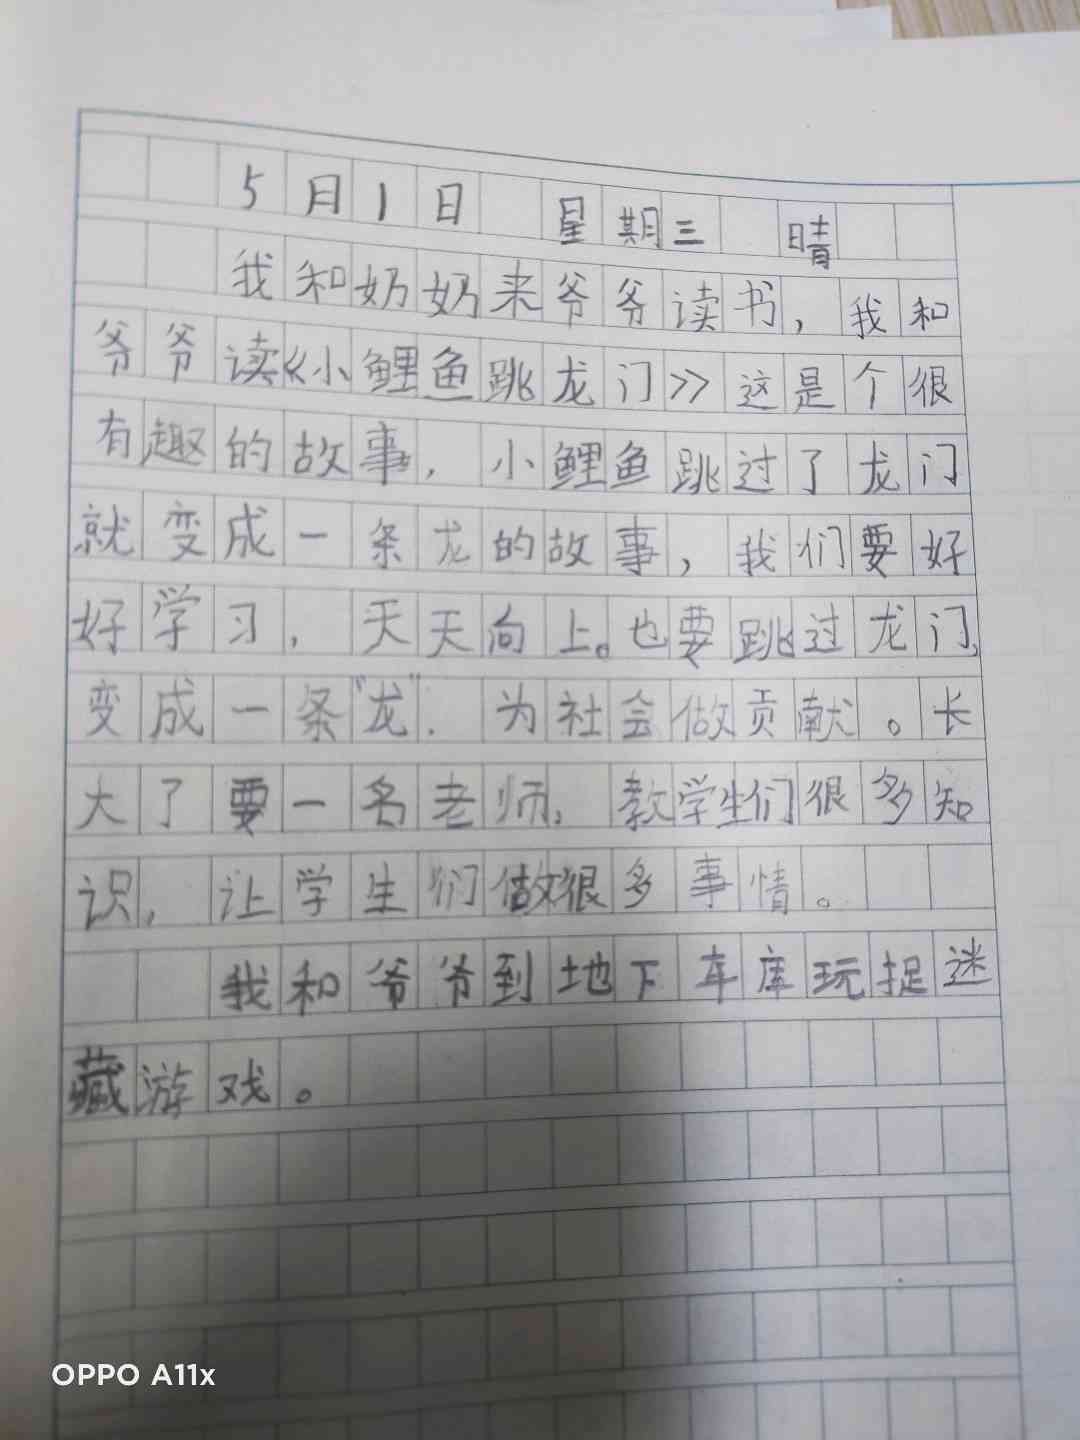 5月1日 星期三 晴
我和奶奶来爷爷读书，我和
爷爷读《小鲤鱼跳龙门》这是个很
有趣的故事，小鲤鱼跳过了龙门
就变成一条龙的故事，我们要好
好学习，天天向上。也要跳过龙门，
变成一条"龙"．为社会做贡献。长
大了要一名老师，教学生们很多知
识，让学生们做很多事情。
我和爷爷到地下车库玩捉迷
藏游戏。
OPPO A11x